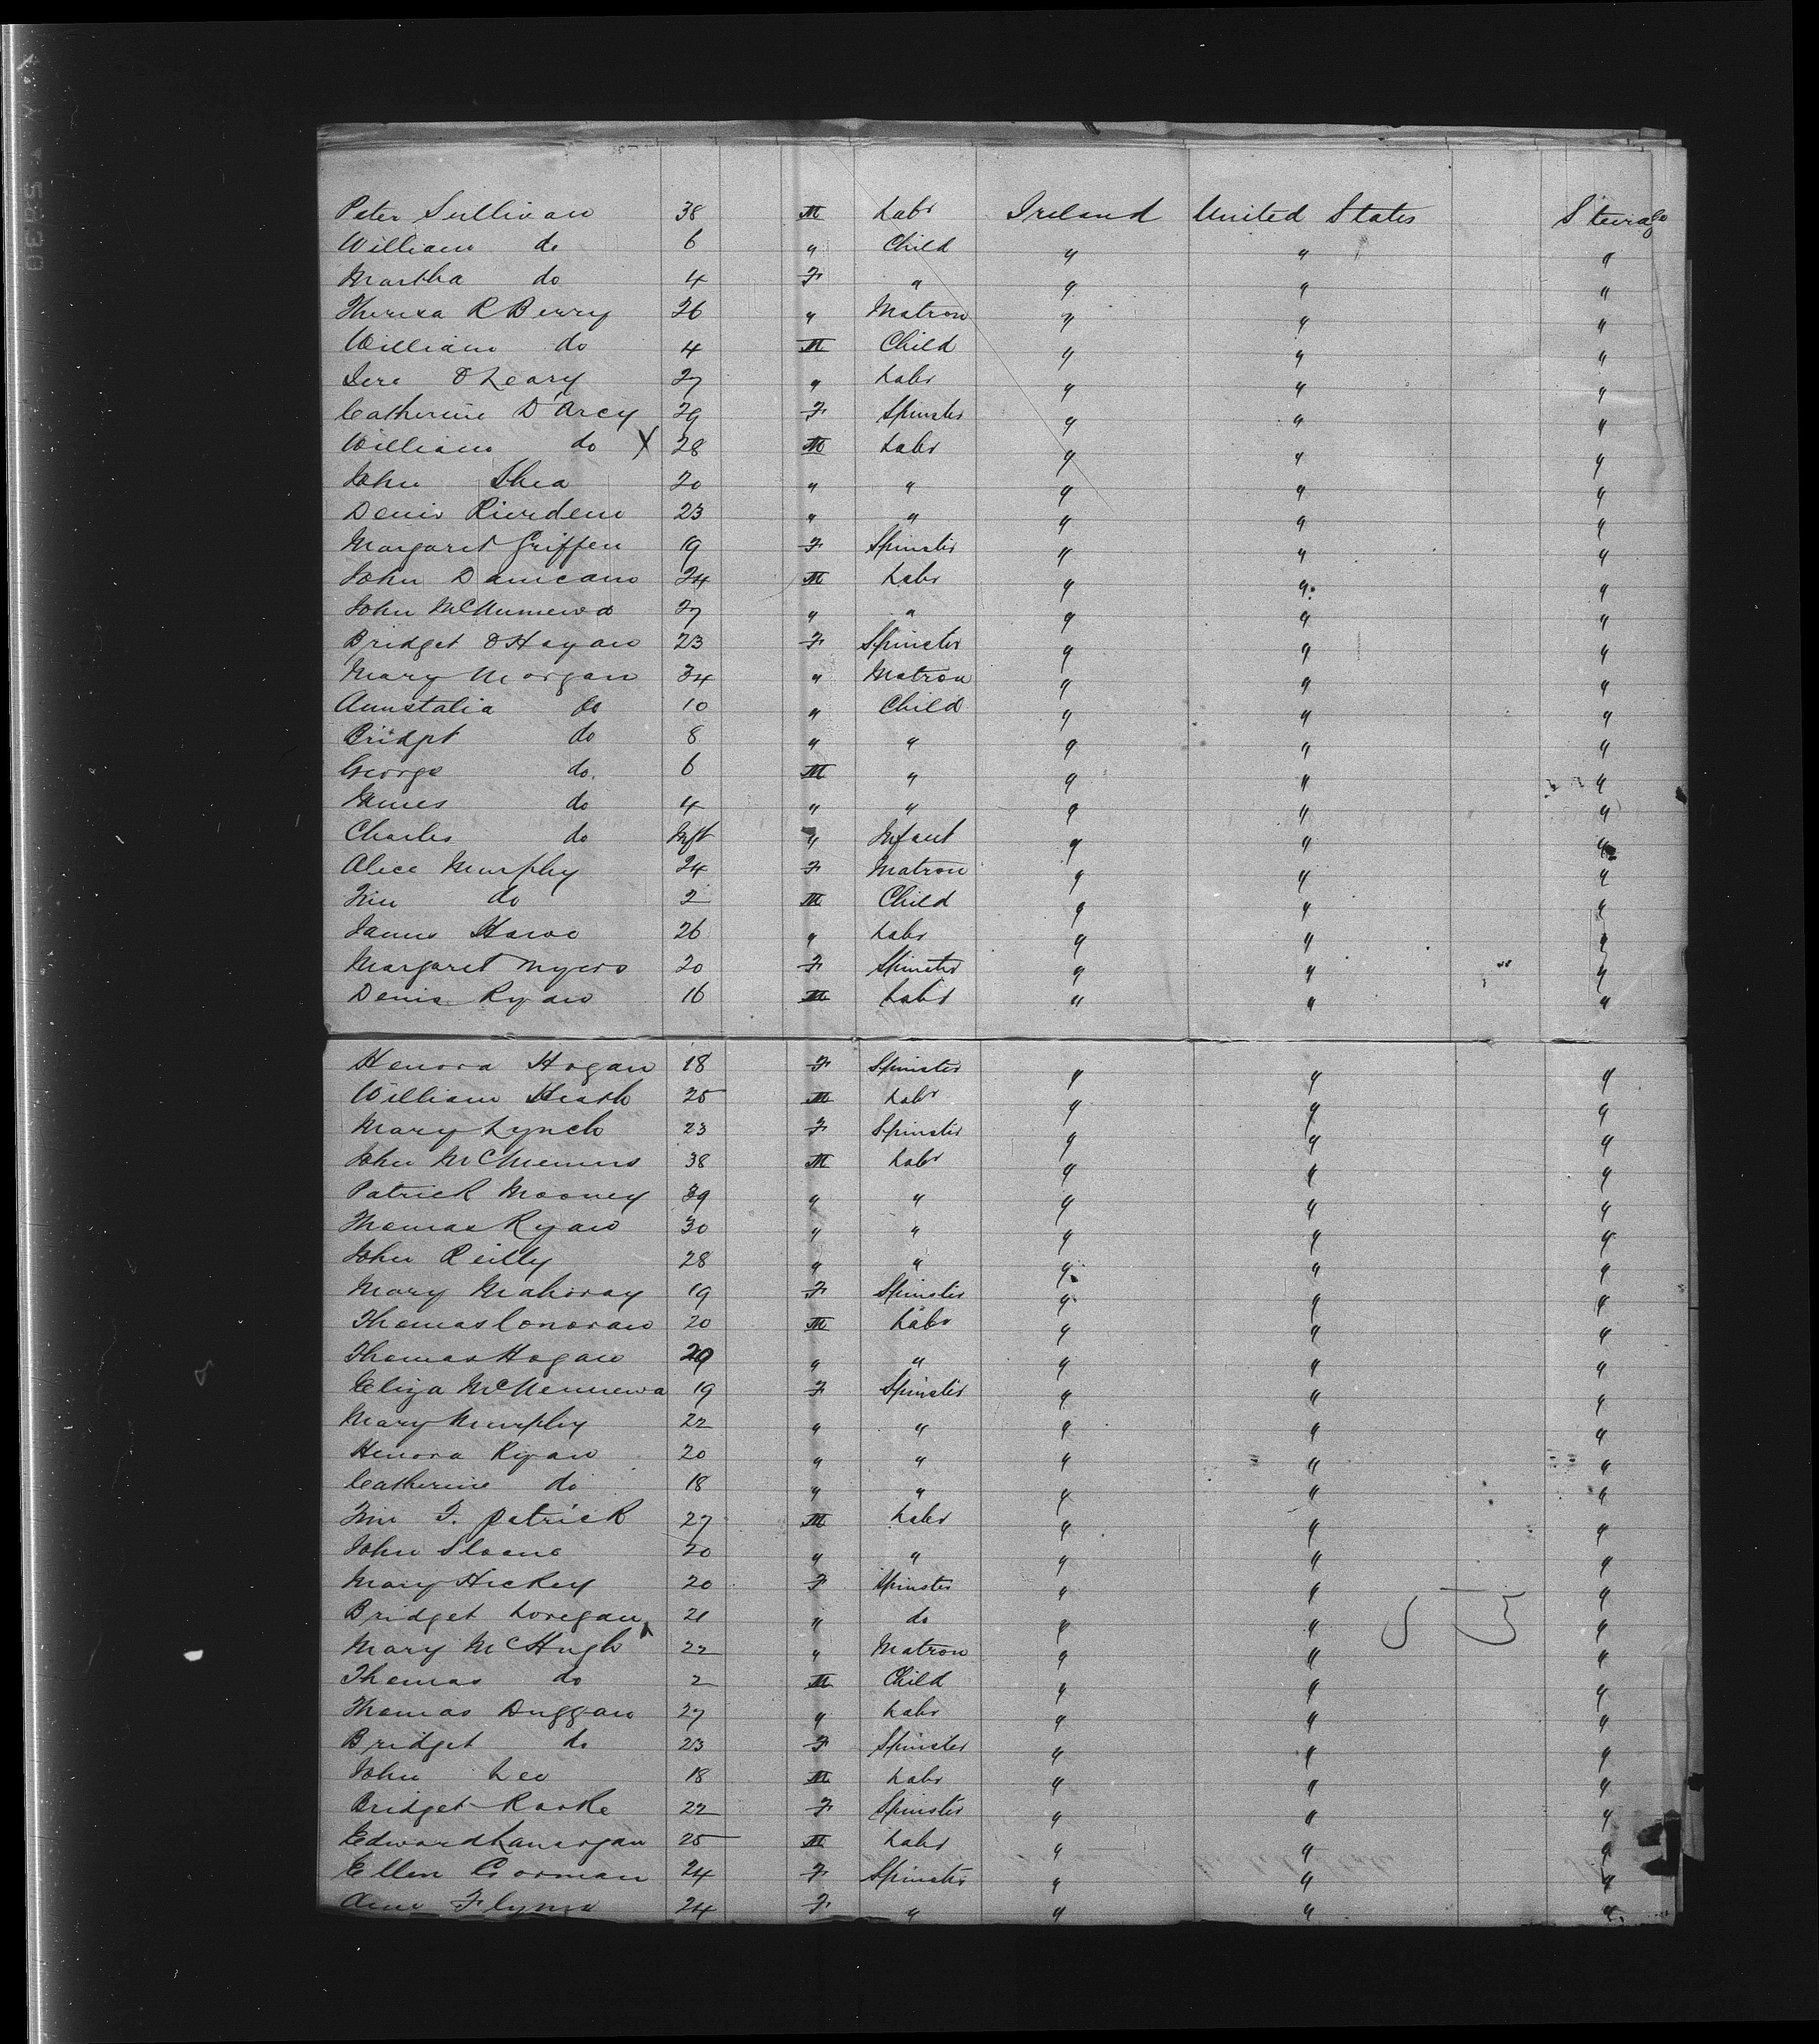 Peter Sullivan 38 M Labr Ireland United States Steerage
William do 6 " Child " " "
Martha do 4 F " " " "
Theresa R Berry 26 " Matron " " "
William do 4 M Child " " "
Jere O Leary 27 " Labr " " "
Catherine D'Arcy 29 F Spinster " " "
William do X 28 M Labr " " "
John Shea 20 " " " " "
Denis Riordem 23 " " " " "
Margaret Griffen 19 F Spinster " " "
John 24 M Labr " " "
John 27 " " " " "
Bridget 23 F Spinster " " "
Mary Morgan 34 " Matron " " "
Annstalia do 10 " Child " " "
Bridget do 8 " " " " "
George do. 6 M " " " "
James do 4 " " " " "
Charles do Inft " Infant " " "
Alice Murphy 24 F Matron " " "
Tim do 2 M Child " " "
James 26 " Labr " " "
Margaret Myers 20 F Spinster " " "
Denis Ryan 16 M Labr " " "
Henora Hogan 18 F Spinster " " "
William Heath 25 M Labr " " "
Mary Lynch 23 F Spinster " " "
John 38 M Labr " " "
Patrick Mooney 39 " " " " "
Thomas Ryan 30 " " " " "
John Reilly 28 " " " " "
Mary Mahoray 19 F Spinster " " "
Thomas Conoran 20 M Labr " " "
Thomas Hogan 29 " " " " "
Eliza 19 F Spinster " " "
Mary Murphy 22 " " " " "
Henora Ryan 20 " " " " "
Catherine do 18 " " " " "
Tim F. patrick 27 M Labr " " "
John Sloane 20 " " " " "
Mary Hickey 20 F Spinster " " "
Bridget Loregan 21 " do " " "
Mary McHugh 22 " Matron " " "
Thomas do 2 M Child " " "
Thomas Duggan 27 " Labr " " "
Bridget do 23 F Spinster " " "
John Lee 18 M Labr " " "
Bridget Rorke 22 F Spinster " " "
Edward Lanargan 25 M Labr " " "
Ellen Gorman 24 F Spinster " " "
Ann Flynn 24 F " " " "